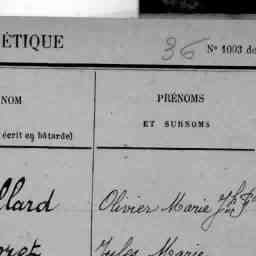 ÉTIQUE 36 N° 1003 de
NOM PRÉNOMS
ET SURNOMS
écrit en bâtarde)
llard Olivier Marie
Jules Marie